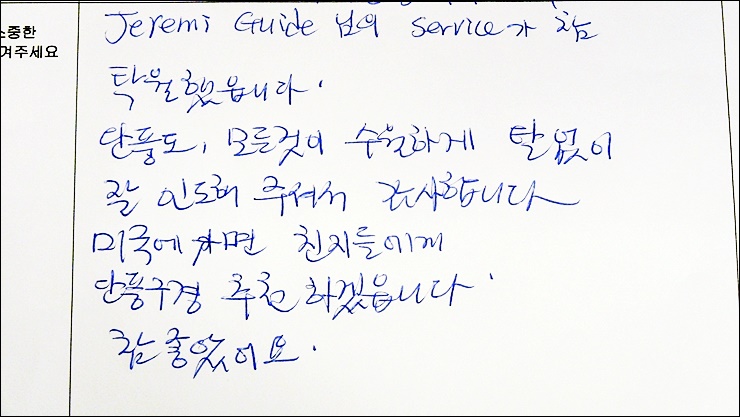 소중한
겨주세요
Jeremi Guide 님의 service가 참
탁월했읍니다.
단풍도, 모든것이 수월하게 탈없이
잘 인도해 주셔서 감사합니다
미국에 가면 친지들에게
단풍구경 추천하겠읍니다.
참 좋았어요.